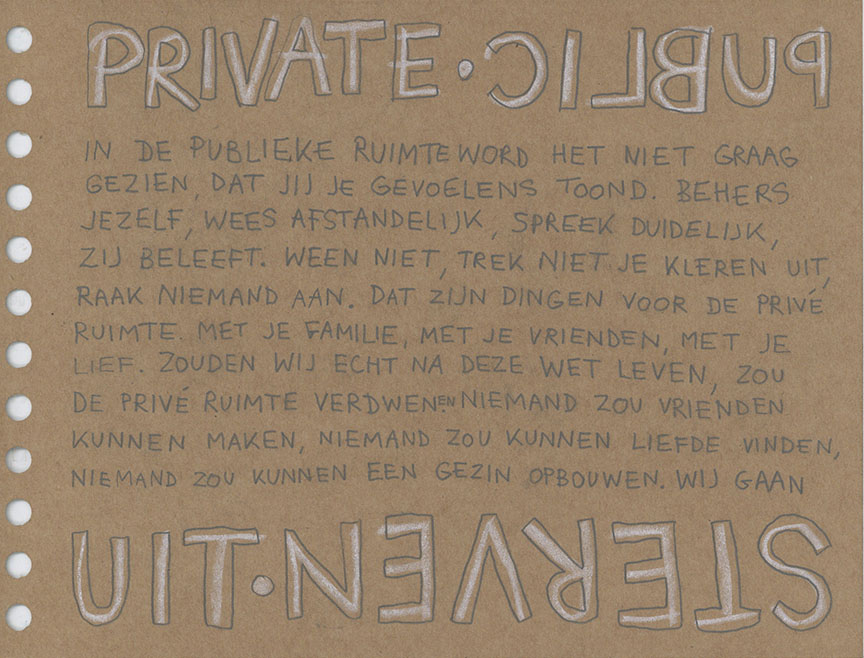 PRIVATE · PUBLIC
IN DE PUBLIEKE RUIMTE WORD HET NIET GRAAG
GEZIEN, DAT JIJ JE GEVOELENS TOOND. BEHERS
JEZELF, WEES AFSTANDELIJK, SPREEK DUIDELIJK,
ZIJ BELEEFT. WEEN NIET, TREK NIET JE KLEREN UIT,
RAAK NIEMAND AAN. DAT ZIJN DINGEN VOOR DE PRIVÉ
RUIMTE. MET JE FAMILIE, MET JE VRIENDEN, MET JE
LIEF. ZOUDEN WIJ ECHT NA DEZE WET LEVEN, ZOU
DE PRIVÉ RUIMTE VERDWENEN EN NIEMAND ZOU VRIENDEN
KUNNEN MAKEN, NIEMAND ZOU KUNNEN LIEFDE VINDEN,
NIEMAND ZOU KUNNEN EEN GEZIN OPBOUWEN. WIJ GAAN
STERVEN · UIT